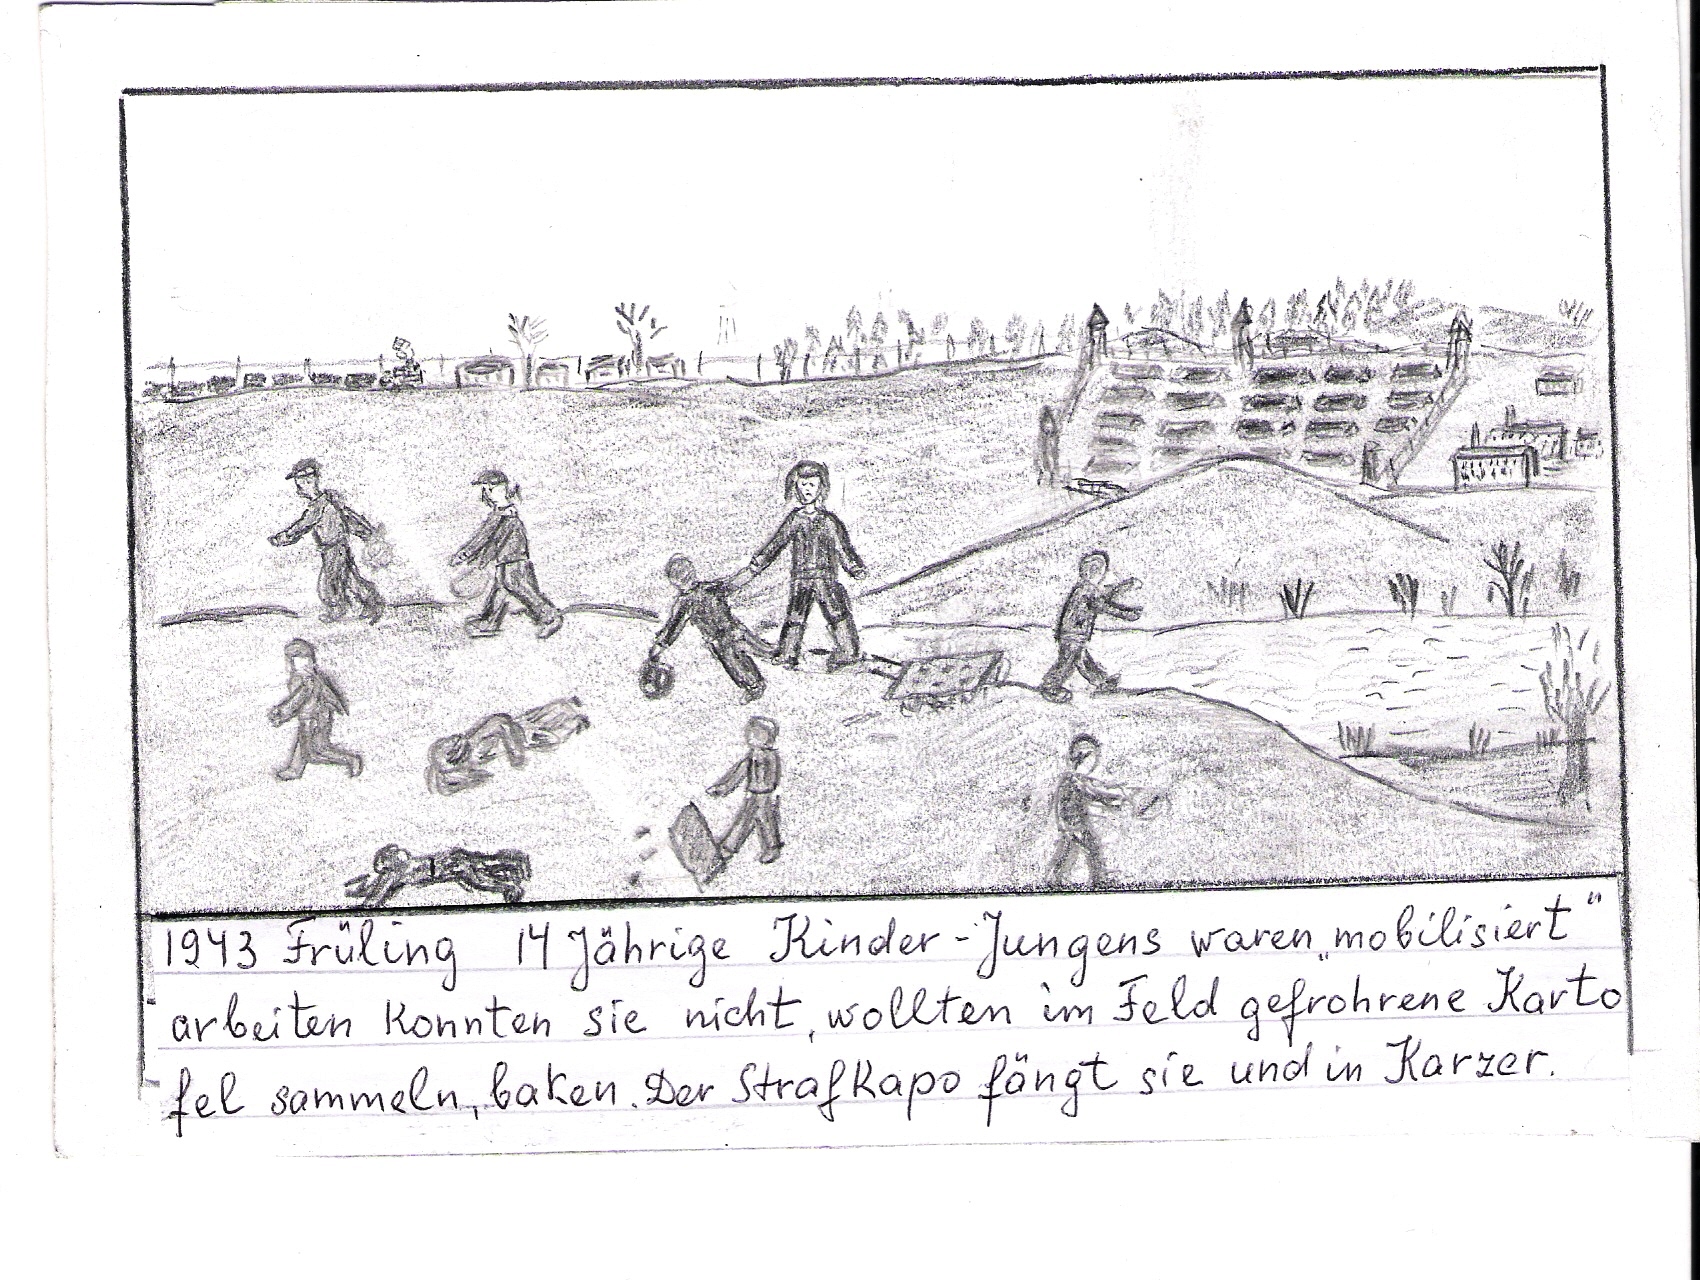 1943 Früling 14 Jährige Kinder-Jungens waren „mobilisiert“
arbeiten konnten sie nicht, wollten im Feld gefrohrene Karto
fel sammeln, baken. Der Strafkapo fängt sie und in Karzer.